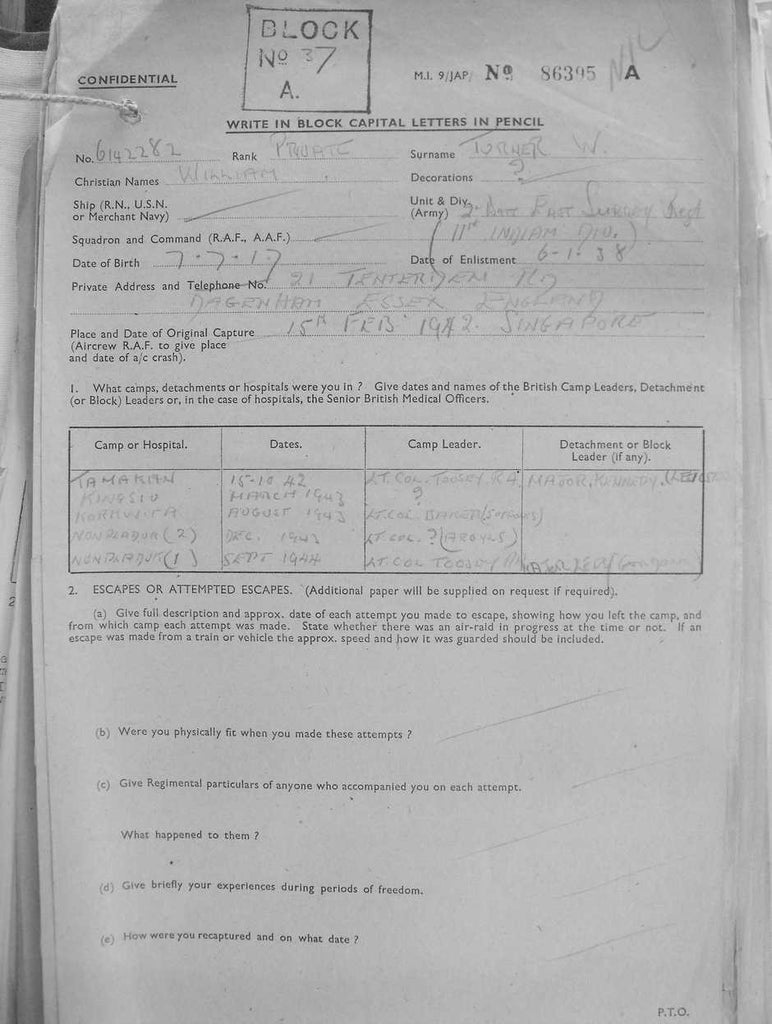 BLOCK
No 37
A.
CONFIDENTIAL
M.I. 9/JAP/ No 86395 A
WRITE IN BLOCK CAPITAL LETTERS IN PENCIL
No. 6142282 Rank PRIVATE Surname TURNER W.
Christian Names WILLIAM. Decorations ?
Ship (R.N., U.S.N. or Merchant Navy)
Unit & Div. (Army) 2 BATT EAST SURREY Regt
(11th INDIAN DIV.)
Squadron and Command (R.A.F., A.A.F.)
Date of Birth 7-7-17 Date of Enlistment 6-1-38
Private Address and Telephone No. 21 TENTERDEN RD
DAGENHAM ESSEX ENGLAND
Place and Date of Original Capture 15TH FEB 1942. SINGAPORE
(Aircrew R.A.F. to give place
and date of a/c crash).
1. What camps, detachments or hospitals were you in ? Give dates and names of the British Camp Leaders, Detachment
(or Block) Leaders or, in the case of hospitals, the Senior British Medical Officers.
Camp or Hospital. Dates. Camp Leader. Detachment or Block Leader (if any).
TAMAKAN 15-10 42 LT. COL. TOOSEY. R A. MAJOR. KENNEDY.
KINGSIO MARCH 1943 ?
AUGUST 1943 LT. COL. BAKER
NONPLADUK (2) DEC. 1943 LT. COL. ? (ARGYLS)
NONPLADUK (1) SEPT 1944 LT. COL TOOSEY
2. ESCAPES OR ATTEMPTED ESCAPES. (Additional paper will be supplied on request if required).
(a) Give full description and approx. date of each attempt you made to escape, showing how you left the camp, and
from which camp each attempt was made. State whether there was an air-raid in progress at the time or not. If an
escape was made from a train or vehicle the approx. speed and how it was guarded should be included.
(b) Were you physically fit when you made these attempts ?
(c) Give Regimental particulars of anyone who accompanied you on each attempt.
What happened to them ?
(d) Give briefly your experiences during periods of freedom.
(e) How were you recaptured and on what date ?
P.T.O.